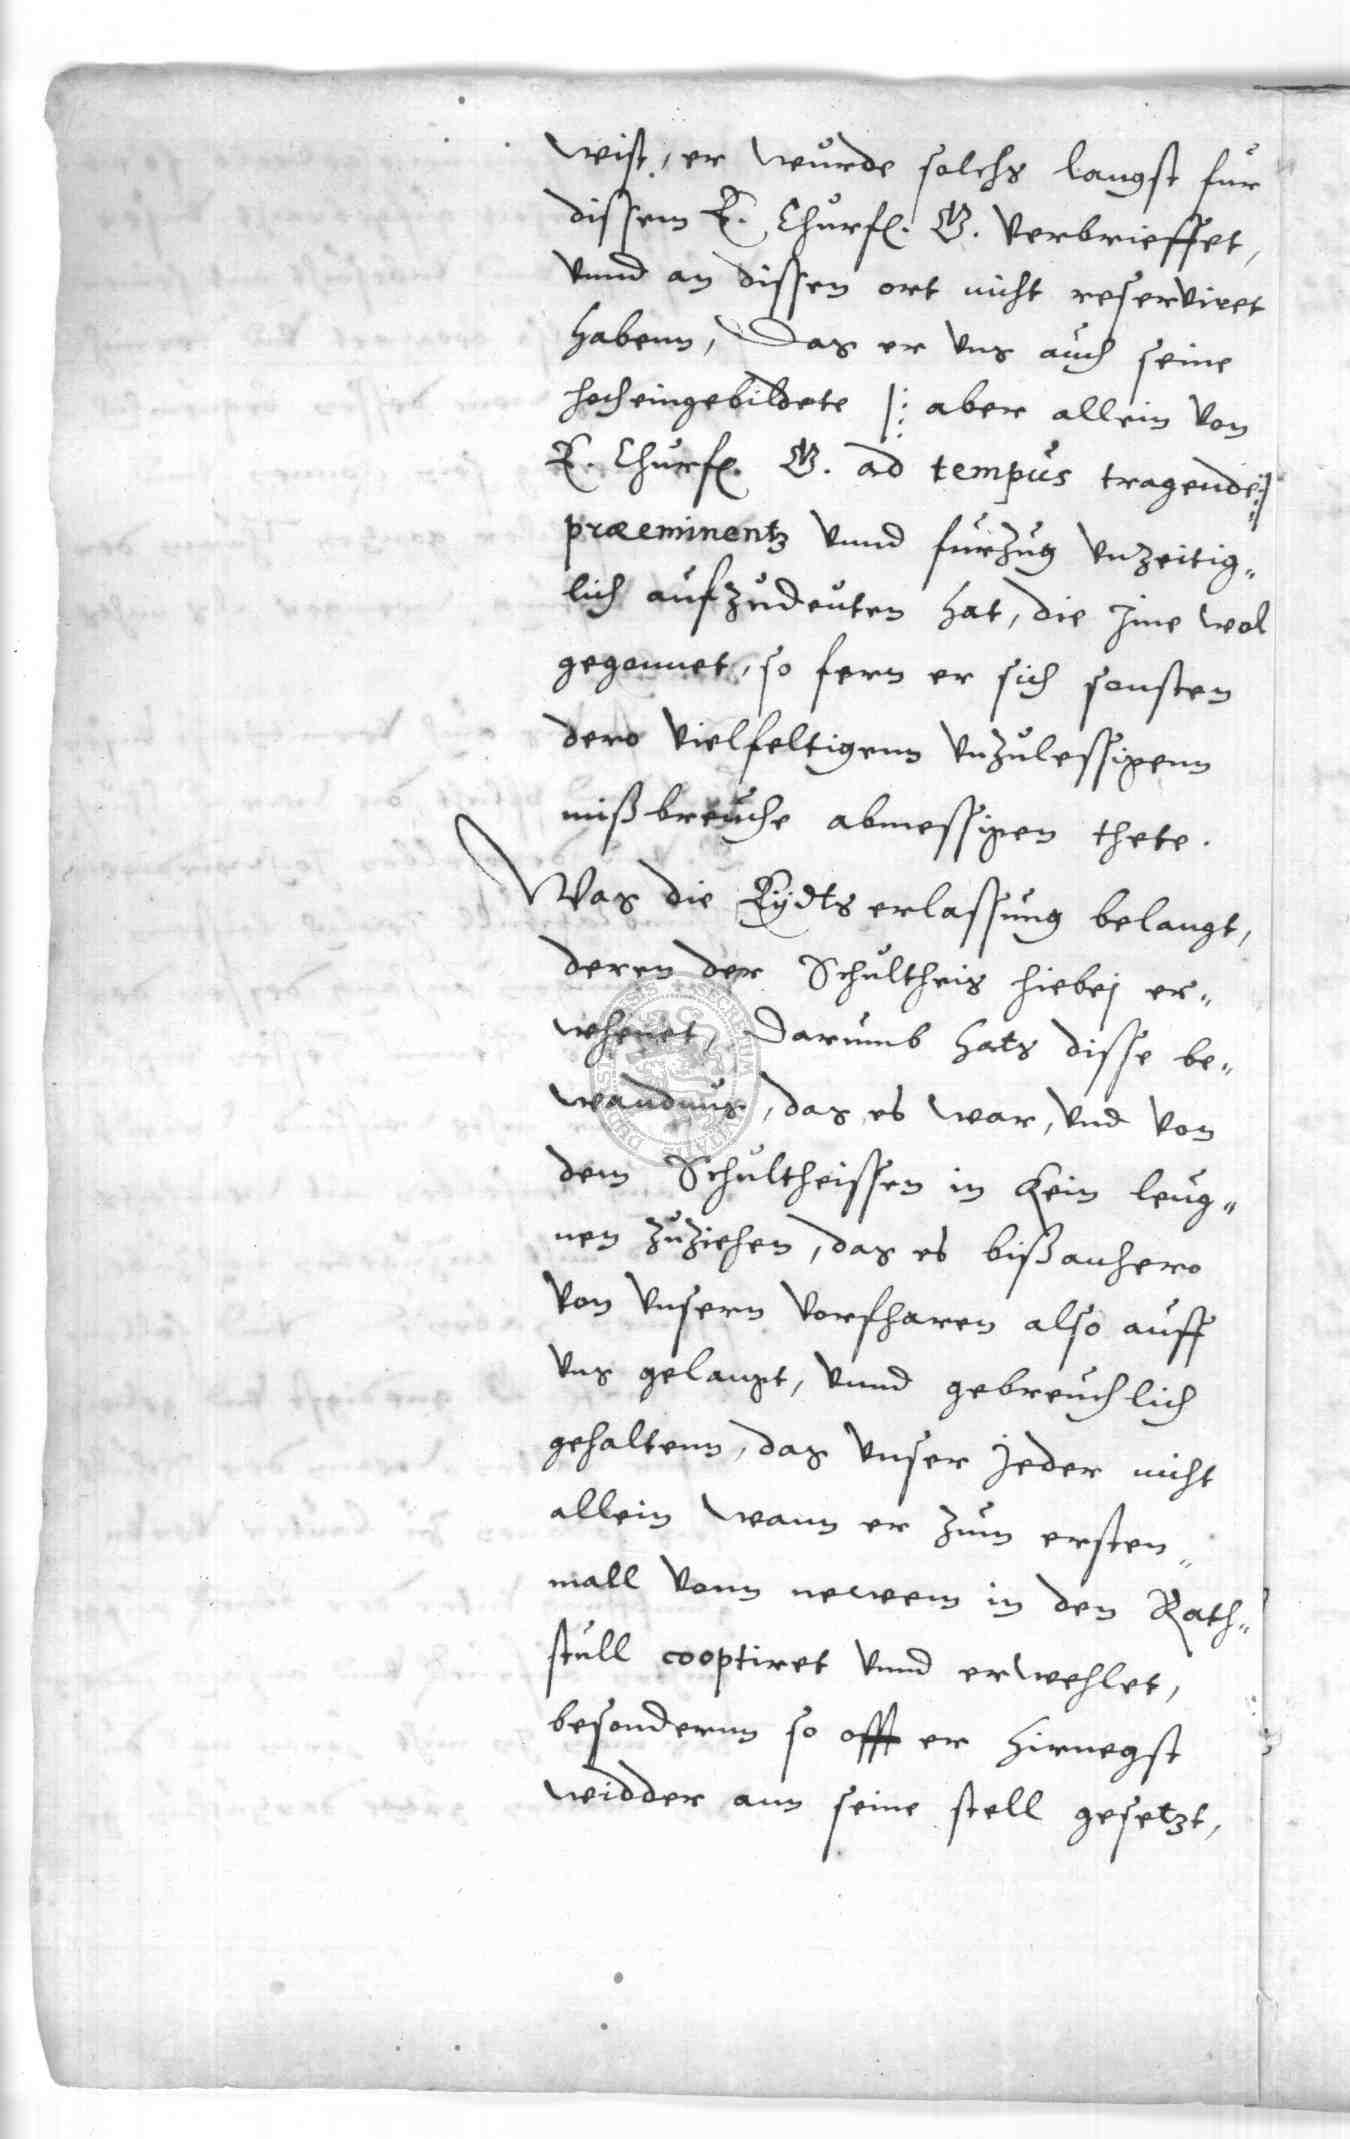 wist, er wurde solchs langst fur
dissem E. Churfl. G. verbrieffet,
vnnd an dissen ort nicht reserviret
habenn, Das er vns auch seine
hocheingebildete |: aber allein von
E. Churfl. G. ad tempus tragende :|
præeminentz vnnd furzug vnzeitig„
lich aufzudeuten hat, die jme wol
gegonnet, so fern er sich sonsten
dero vielfeltigenn vnzulessigenn
mißbreuche abmessigen thete.
Was die Eydts erlassung belangt,
deren der Schultheis hiebej er„
whenet, Darumb hats disse be„
wandnus, das es war, vnd von
dem Schultheissen in kein leug„
nen zuziehen, das es bißanhero
von vnsern vorfharen also auff
vns gelangt, vnnd gebreuchlich
gehaltenn, das vnser jeder nicht
allein wann er zum ersten„
mall vonn newem in den Rath„
stull cooptiret vnnd erwehlet,
besondernn so offt er hirnegst
widder ann seine stell gesetzt,